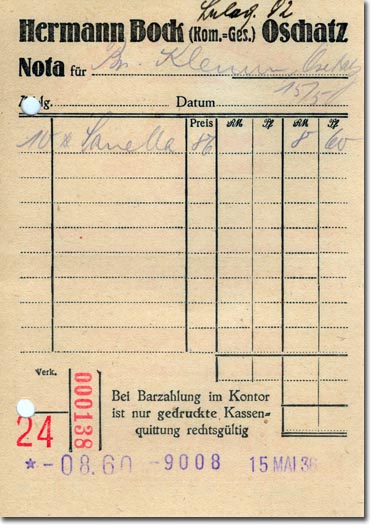 Hermann Bock (Kom.=Ges.) Oschatz
Nota für Klemm, Oschatz
15/5
Datum
Preis RM Pf RM Pf
10 Sanella 86 8 60
Verk.
24
000138
Bei Barzahlung im Kontor
ist nur gedruckte Kassen-
quittung rechtsgültig
*-08.60 -9008 15 MAI 36